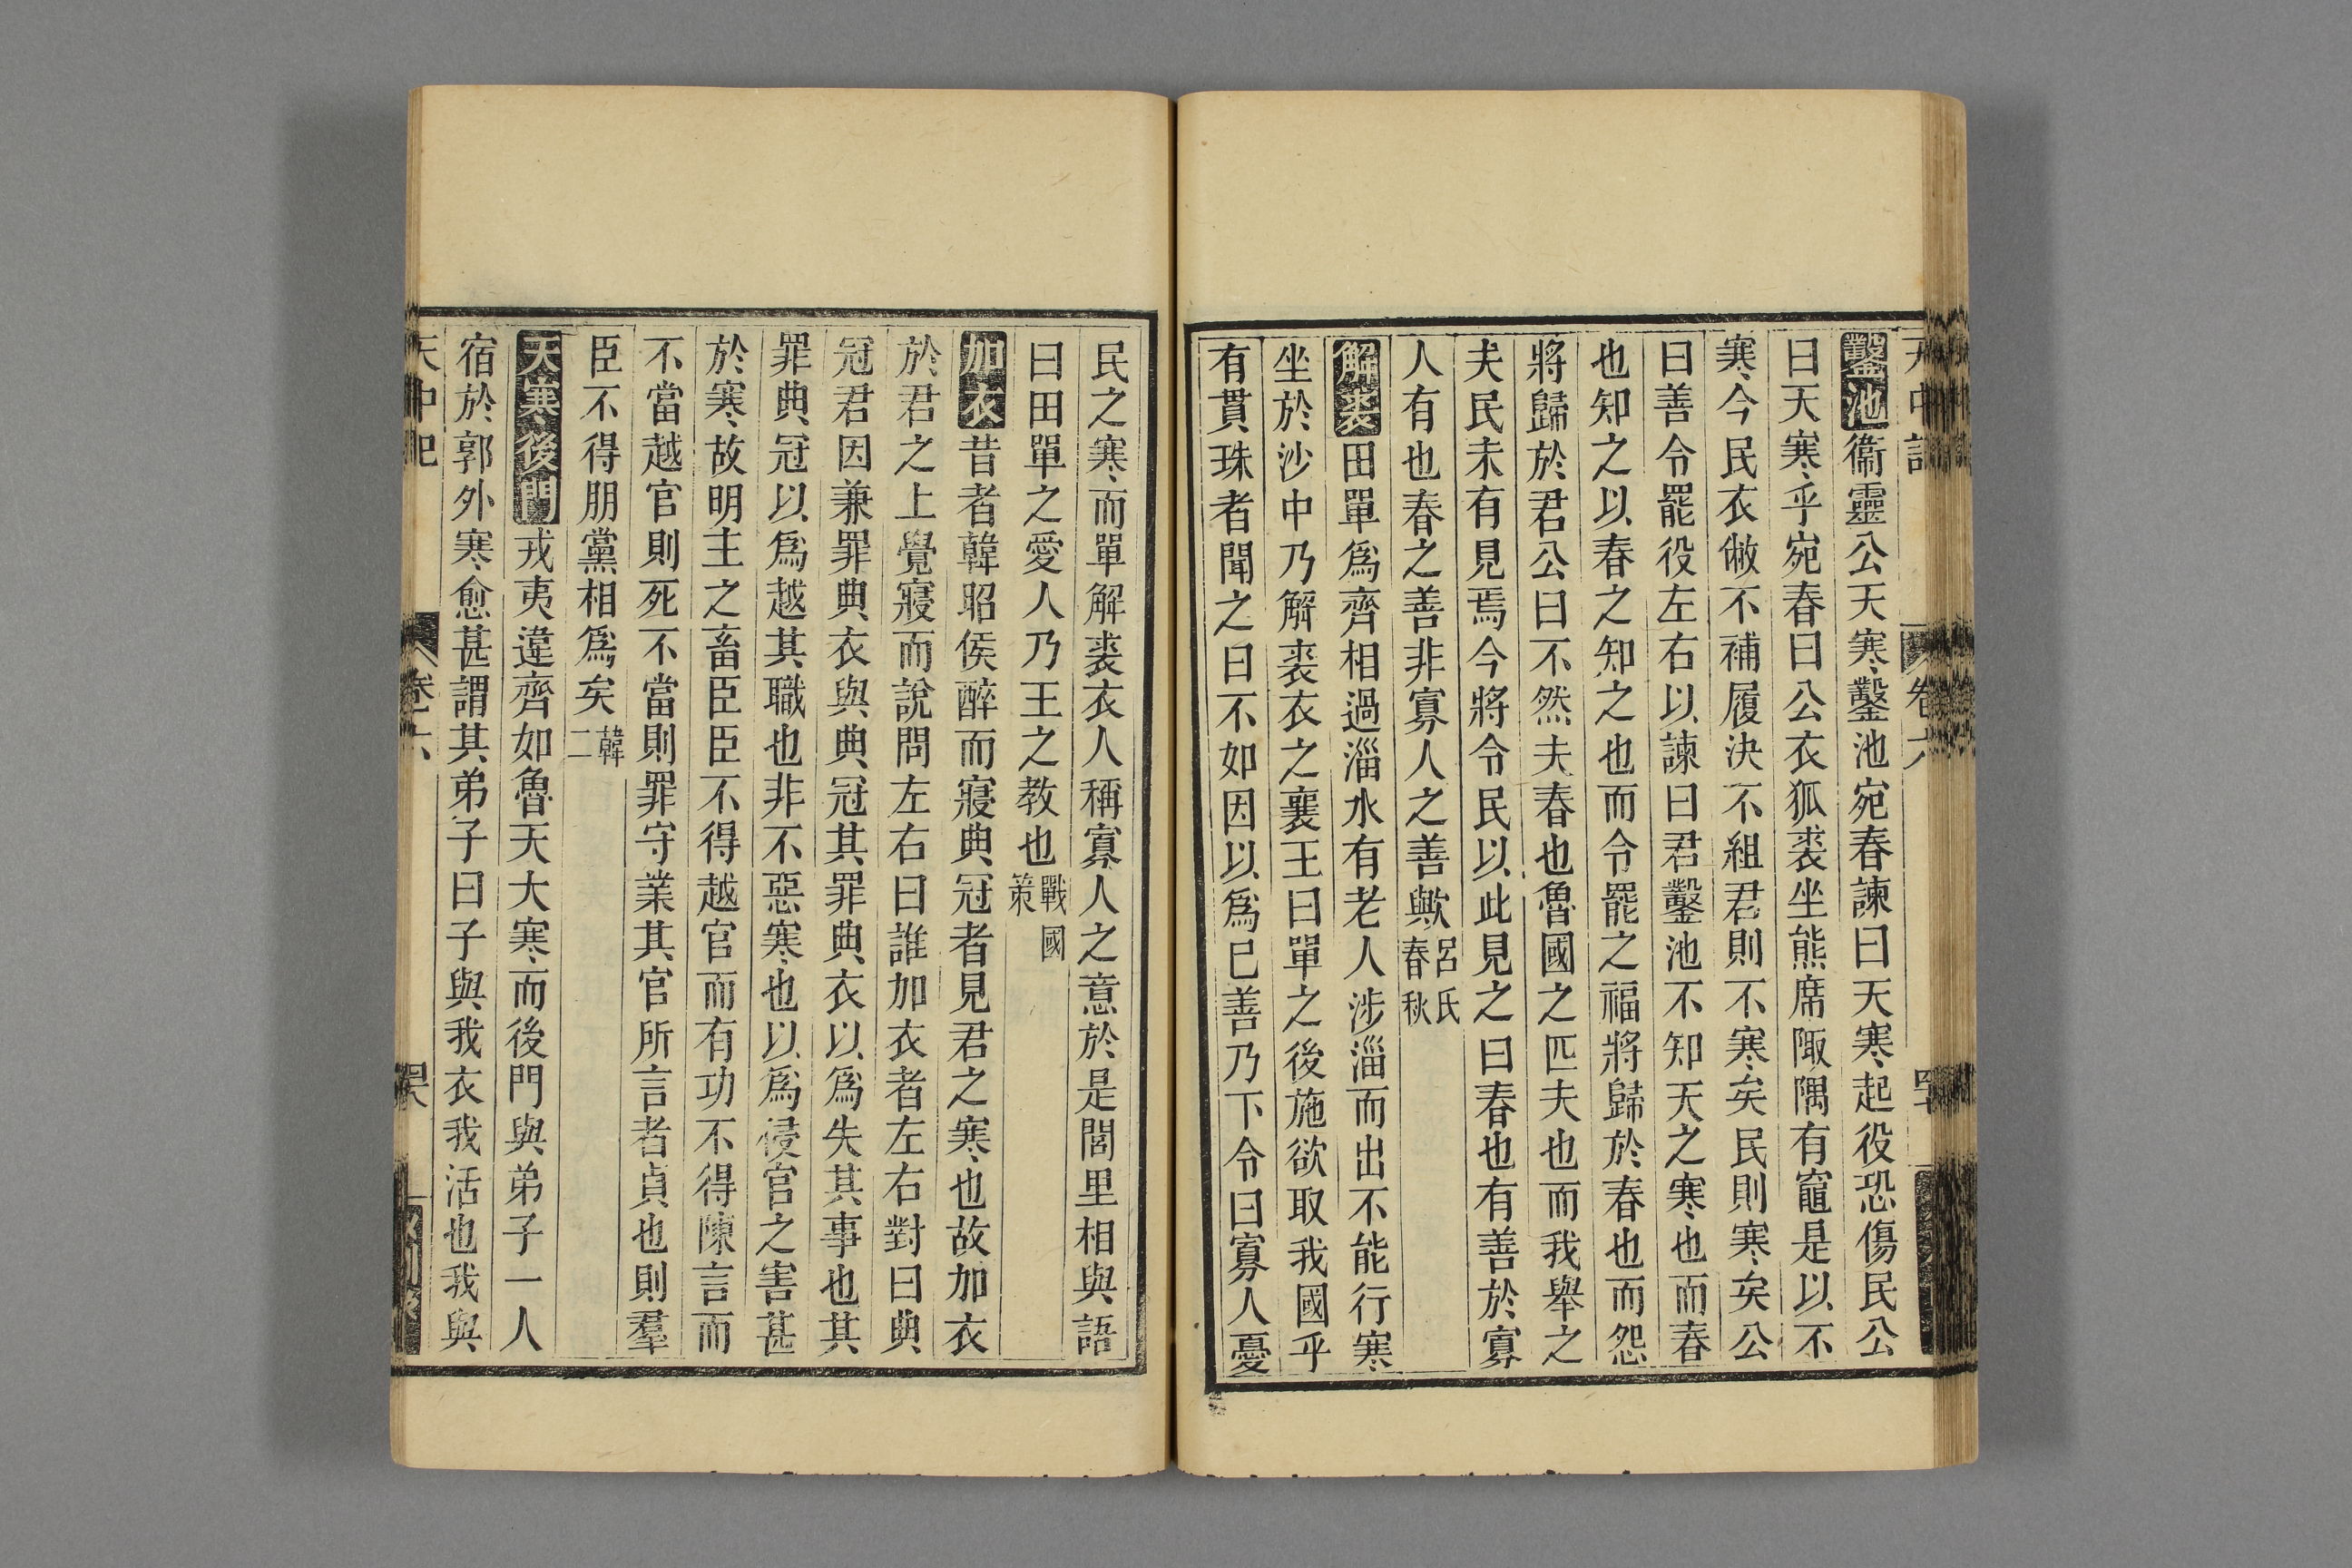 鑿池衞靈公天寒鑿池宛春諫曰天寒起役恐傷民公
曰天寒乎宛春曰公衣狐裘坐熊席陬隅有竈是以不
寒今民衣敝不補履決不組君則不寒矣民則寒矣公
曰善令罷役左右以諫曰君鑿池不知天之寒也而春
也知之以春之知之也而令罷之福將歸於春也而怨
將歸於君公曰不然夫春也魯國之匹夫也而我舉之
夫民未有見焉今將令民以此見之曰春也有善於寡
人有也春之善非寡人之善歟呂氏春秋
解裘田單爲齊相過淄水有老人涉淄而出不能行寒
坐於沙中乃解裘衣之襄王曰單之後施欲取我國乎
有貫珠者聞之曰不如因以爲巳善乃下令曰寡人憂
民之寒而單解裘衣人稱寡人之意於是閭里相與語
曰田單之愛人乃王之教也戰國策
加衣昔者韓昭侯醉而寢典冠者見君之寒也故加衣
於君之上覺寢而說問左右曰誰加衣者左右對曰典
冠君因兼罪典衣與典冠其罪典衣以爲失其事也其
罪典冠以爲越其職也非不惡寒也以爲侵官之害甚
於寒故明主之畜臣臣不得越官而有功不得陳言而
不當越官則死不當則罪守業其官所言者貞也則羣
臣不得朋黨相爲矣韓二
天寒後門戎夷違齊如魯天大寒而後門與弟子一人
宿於郭外寒愈甚謂其弟子曰子與我衣我活也我與
卷六